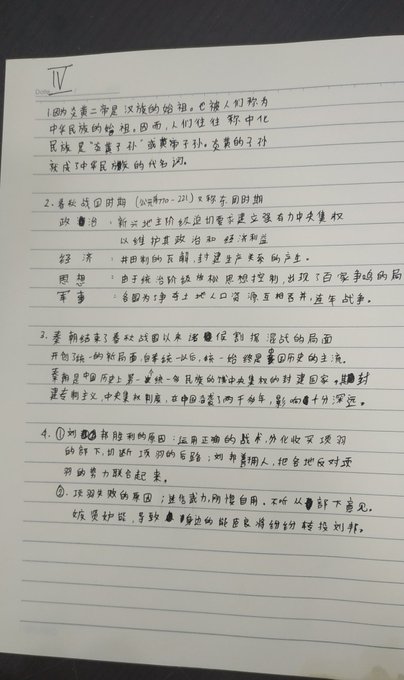 IV
Date
1.因为炎黄二帝是汉族的始祖。也被人们称为
中华民族的始祖。因而，人们往往称中华
民族是"炎黄子孙"或黄帝子孙。炎黄的子孙
就成了中华民族的代名词。
2. 春秋战国时期 (公元前770-221) 又称东周时期
政治：新兴地主阶级迫切要求建立强有力中央集权
以维护其政治和经济利益
经济：井田制的瓦解，封建生产关系的产生。
思想：由于统治阶级放松思想控制，出现了百家争鸣的局
军事：各国为了争夺土地人口资源互相吞并，连年战争。
3. 秦朝结束了春秋战国以来诸侯割据混战的局面
开创了统一的新局面，自秦统一以后，统一始终是中国历史的主流。
秦朝是中国历史上第一个统一多民族的中央集权的封建国家。其封
建专制主义，中央集权制度，在中国沿袭了两千多年，影响十分深远。
4. ①刘邦胜利的原因：运用正确的战术，分化收买项羽
的部下，切断项羽的后路；刘邦善拥人，把各地反对项
羽的势力联合起来。
②. 项羽失败的原因；迷信武力，刚愎自用，不听从部下意见。
嫉贤妒能，导致身边的能臣良将纷纷转投刘邦。